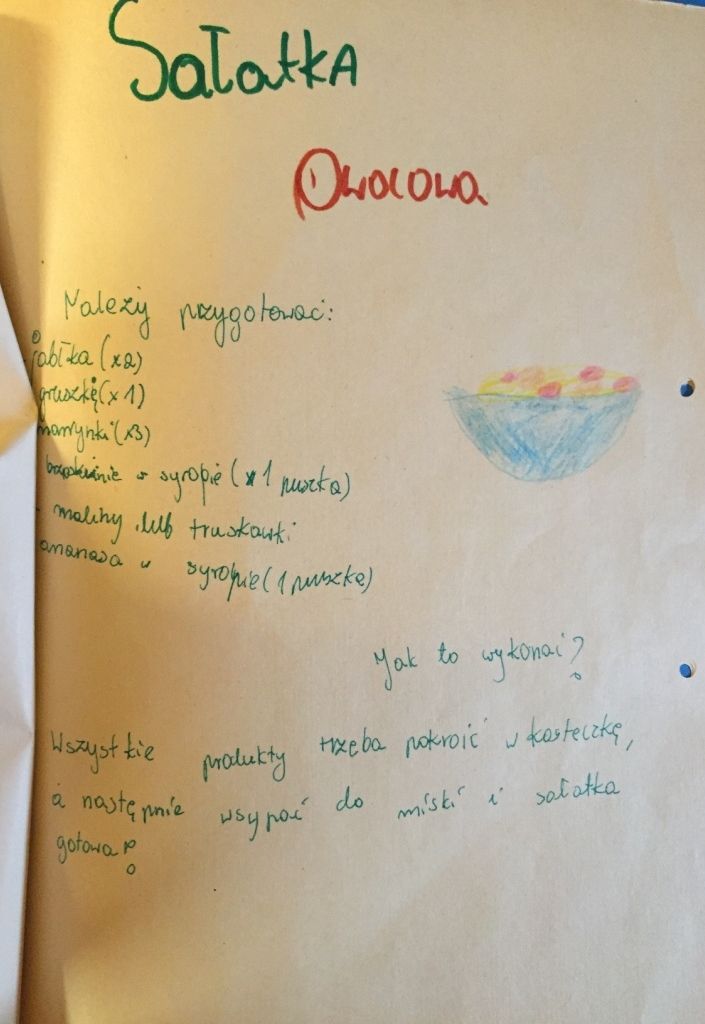 SałatkA
Owocowa
Należy przygotować:
jabłka (x2)
gruszkę (x1)
marynki (x3)
brzoskwinie w syropie (x1 puszka)
- maliny lub truskawki
ananasa w syropie (1 puszka)
Jak to wykonać?
Wszystkie produkty trzeba pokroić w kosteczkę,
a następnie wsypać do miski i sałatka
gotowa!